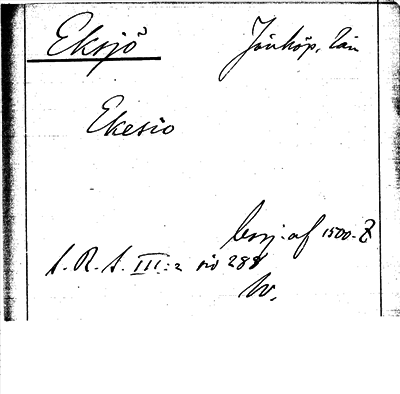 Eksjö Jönköp. län
Ekesio
börj. af 1500-t
S. R. A. III:2 sid 288
W.